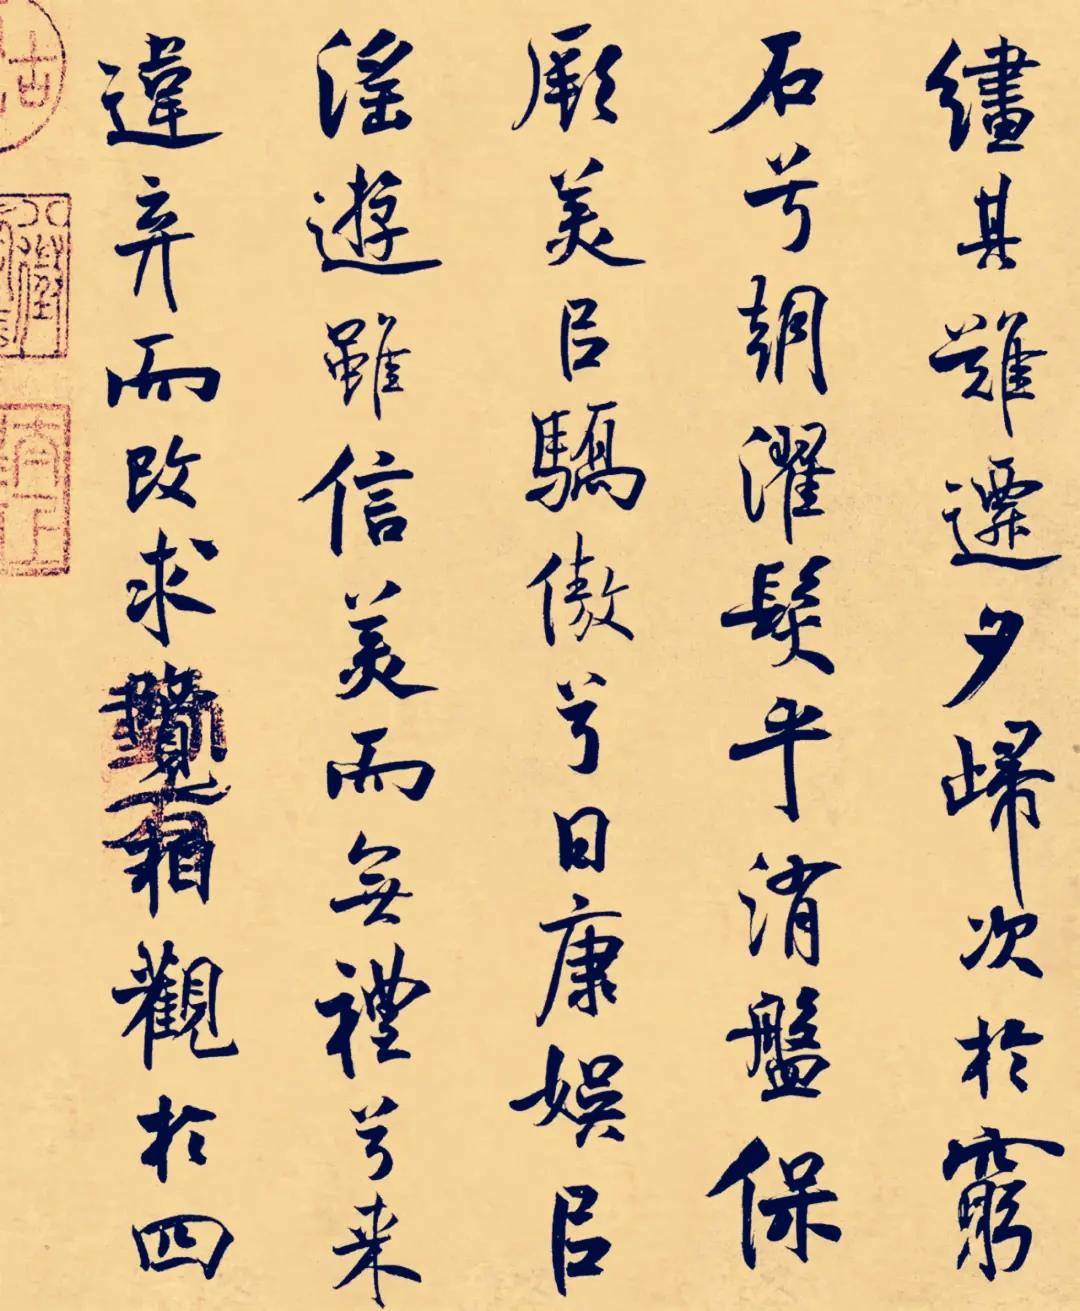 繣其難遷夕歸次於窮
石兮朝濯髮乎洧盤保
厥美㠯驕傲兮日康娛㠯
滛遊雖信美而無禮兮来
違弃而改求覽相觀於四